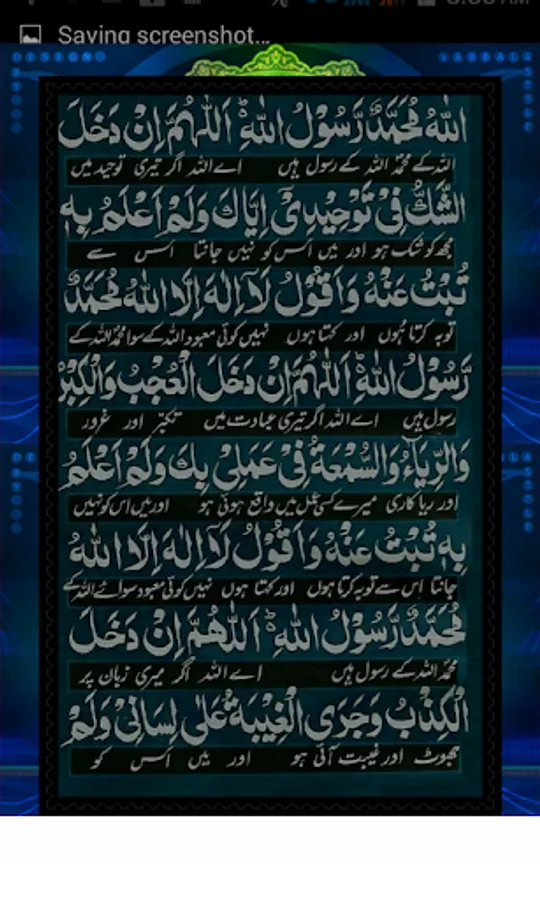 Saving screenshot...
اللهُ مُحَمَّدٌ رَّسُوْلُ اللهِ ؕ اَللّٰهُمَّ اِنْ دَخَلَ
اللہ کے محمدؐ اللہ کے رسول ہیں اے اللہ اگر تیری توحید میں
الشَّكُّ فِيْ تَوْحِيْدِيْٓ اِيَّاكَ وَلَمْ اَعْلَمُ بِهٖ
مجھ کو شک ہو اور میں اس کو نہیں جانتا اس سے
تُبْتُ عَنْهُ وَاَقُوْلُ لَآ اِلٰهَ اِلَّا اللهُ مُحَمَّدٌ
توبہ کرتا ہوں اور کہتا ہوں نہیں کوئی معبود اللہ کے سوا محمدؐ اللہ کے
رَّسُوْلُ اللهِ ؕ اَللّٰهُمَّ اِنْ دَخَلَ الْعُجْبُ وَالْكِبْرُ
رسول ہیں اے اللہ اگر تیری عبادت میں تکبّر اور غرور
وَالرِّيَآءُ وَالسُّمْعَةُ فِيْ عَمَلِيْ بِكَ وَلَمْ اَعْلَمُ
اور ریا کاری میرے کسی عمل میں واقع ہوئی ہو اور میں اس کو نہیں
بِهٖ تُبْتُ عَنْهُ وَاَقُوْلُ لَآ اِلٰهَ اِلَّا اللهُ
جانتا اس سے توبہ کرتا ہوں اور کہتا ہوں نہیں کوئی معبود سوائے اللہ کے
مُحَمَّدٌ رَّسُوْلُ اللهِ ؕ اَللّٰهُمَّ اِنْ دَخَلَ
محمدؐ اللہ کے رسول ہیں اے اللہ اگر میری زبان پر
الْكِذْبُ وَجَرَى الْغِيْبَةُ عَلٰى لِسَانِيْ وَلَمْ
جھوٹ اور غیبت آئی ہو اور میں اس کو